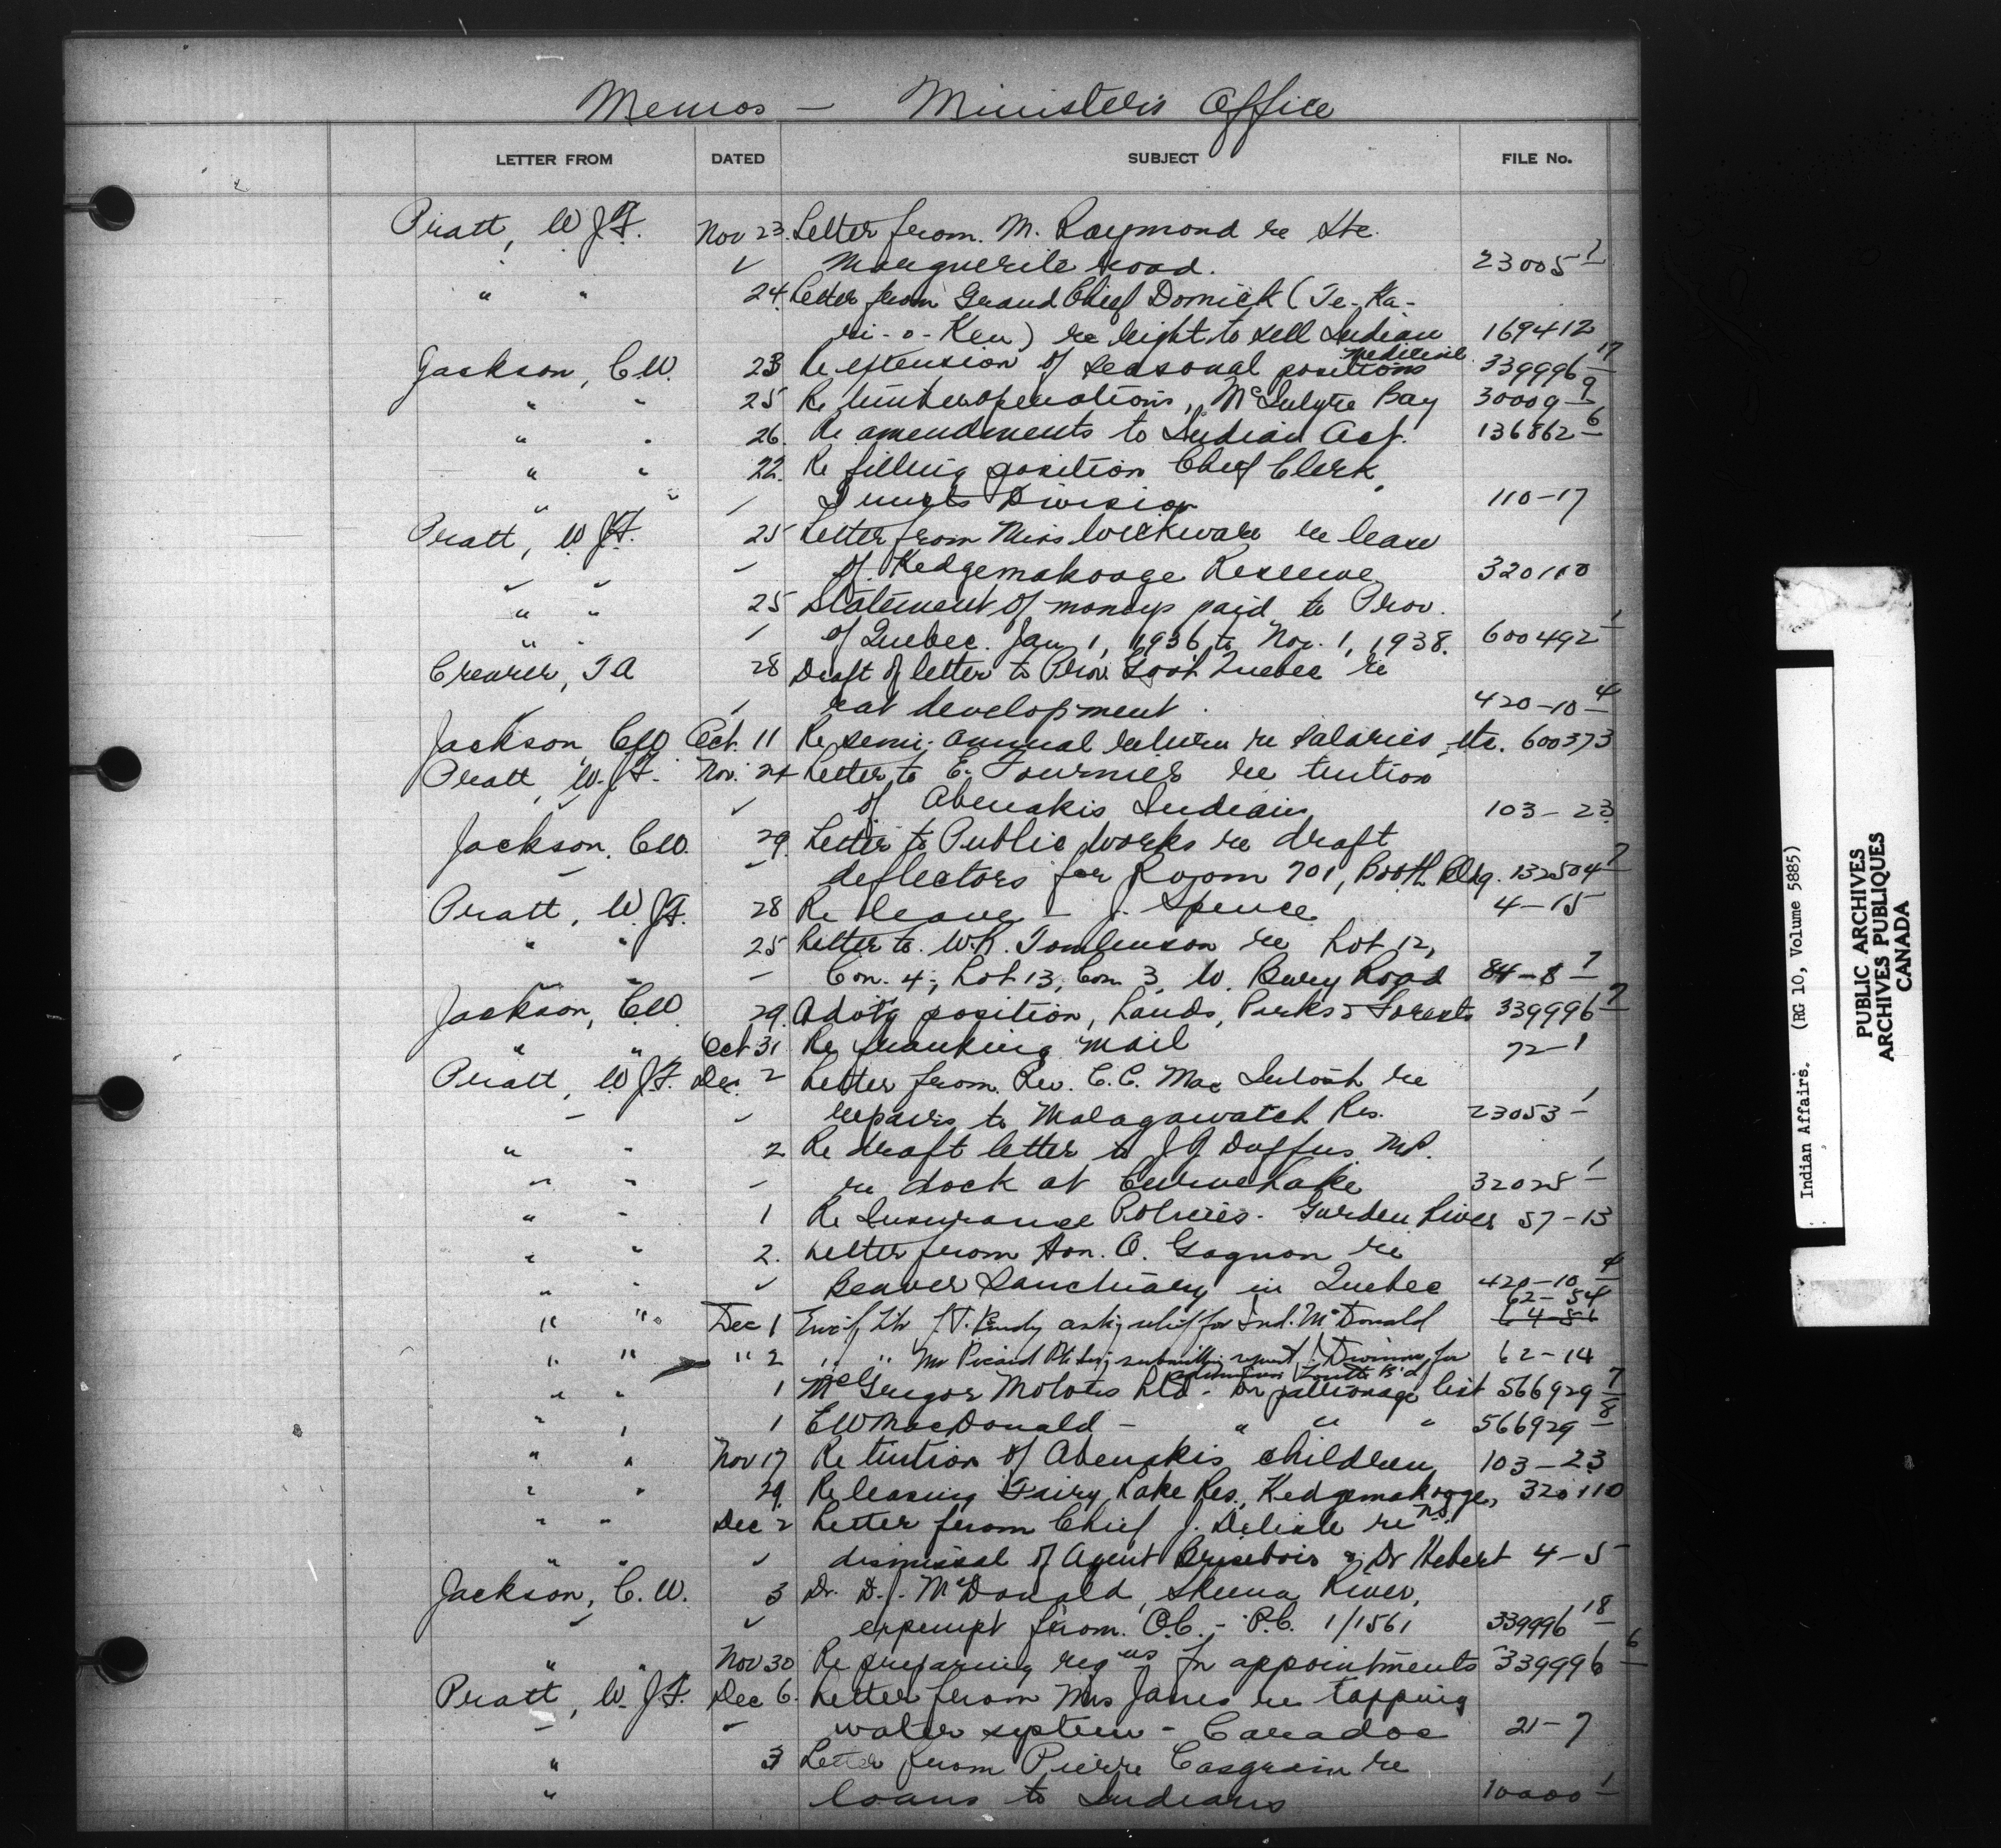 Memos — Minister's Office
LETTER FROM DATED SUBJECT FILE No.
Pratt, W.J.F. Nov 23. Letter from M. Raymond re Ste.
✓ Marguerite road. 23005-7
" " 24. Letter from Grand Chief Dornick (Te-Ka-
ri-o-Ken) re right to sell Indian 169412
medicine.
Jackson, C.W. 23 Re extension of seasonal positions 339996-17
" " 25 Re timber operations, McIntyre Bay 30009-9
" " 26. Re amendments to Indian Act. 136862-6
" " 22. Re filling position Chief Clerk,
" " Division 110-17
Pratt, W.J.F. 25 Letter from Miss Wickware re lease
of Kedgemakooge Reserve 320110
" " 25 Statement of moneys paid to Prov.
" " of Quebec. Jan 1, 1936 to Nov. 1, 1938. 600492-1
Crearer, T A 28 Draft of letter to Prov. Govt Quebec re
rat development. 420-10-4
Jackson, C.W. Oct. 11 Re semi-annual return re salaries, etc. 600373
Pratt, W.J.F. Nov. 24 Letter to E. Fournier re tuition
✓ of Abenakis Indians 103-23
Jackson, C.W. 29. Letter to Public Works re draft
deflectors for Room 701, Booth Bldg. 132504-7
Pratt, W.J.F. 28 Re leave - J. Spence 4-15
" " 25 Letter to W.R. Tomlinson re Lot 12,
Con. 4; Lot 13, Con 3, W. Bury Road 84-8-7
Jackson, C.W. 29. position, Lands, Parks & Forests 339996-7
" " Oct 31 Re franking mail 72-1
Pratt, W.J.F. Dec. 2 Letter from Rev. C.C. MacIntosh re
✓ repairs to Malagawatch Res. 23053-1
" " 2 Re draft letter to J.J. Duffus M.P.
" " re dock at Curve Lake 32025-1
" " 1 Re Insurance Policies - Garden River 57-13
" " 2. Letter from Hon. O. Gagnon re
" " ✓ Beaver Sanctuary in Quebec 420-10-4
62-54
" " Dec 1 Enc'g ltr J.T. Purdy ask'g relief for Ind. McDonald 64-56
" " " 2 " " Mr Picard submitting report for 62-14
" " 1 McGregor Motors Ltd - on patronage list 566929-7
" " 1 E W MacDonald - " " " 566929-8
" " Nov 17 Re tuition of Abenakis children 103-23
" " 29. Re leasing Fairy Lake Res., Kedgemakooge, 320110
N.S.
" " Dec 2 Letter from Chief J. Delisle re
" " ✓ dismissal of Agent Brisebois & Dr Hebert 4-5
Jackson, C.W. 3 Dr. D.J. McDonald, Skeena River,
✓ ✓ exempt from O.C. - P.C. 1/1561 339996-18
" " Nov 30 Re preparing reqns for appointments 339996-6
Pratt, W.J.F. Dec 6. Letter from Mrs James re tapping
water system - Caradoc 21-7
" 3 Letter from Pierre Casgrain re
" loans to Indians 10000-1
Indian Affairs. (RG 10, Volume 5885)
PUBLIC ARCHIVES
ARCHIVES PUBLIQUES
CANADA